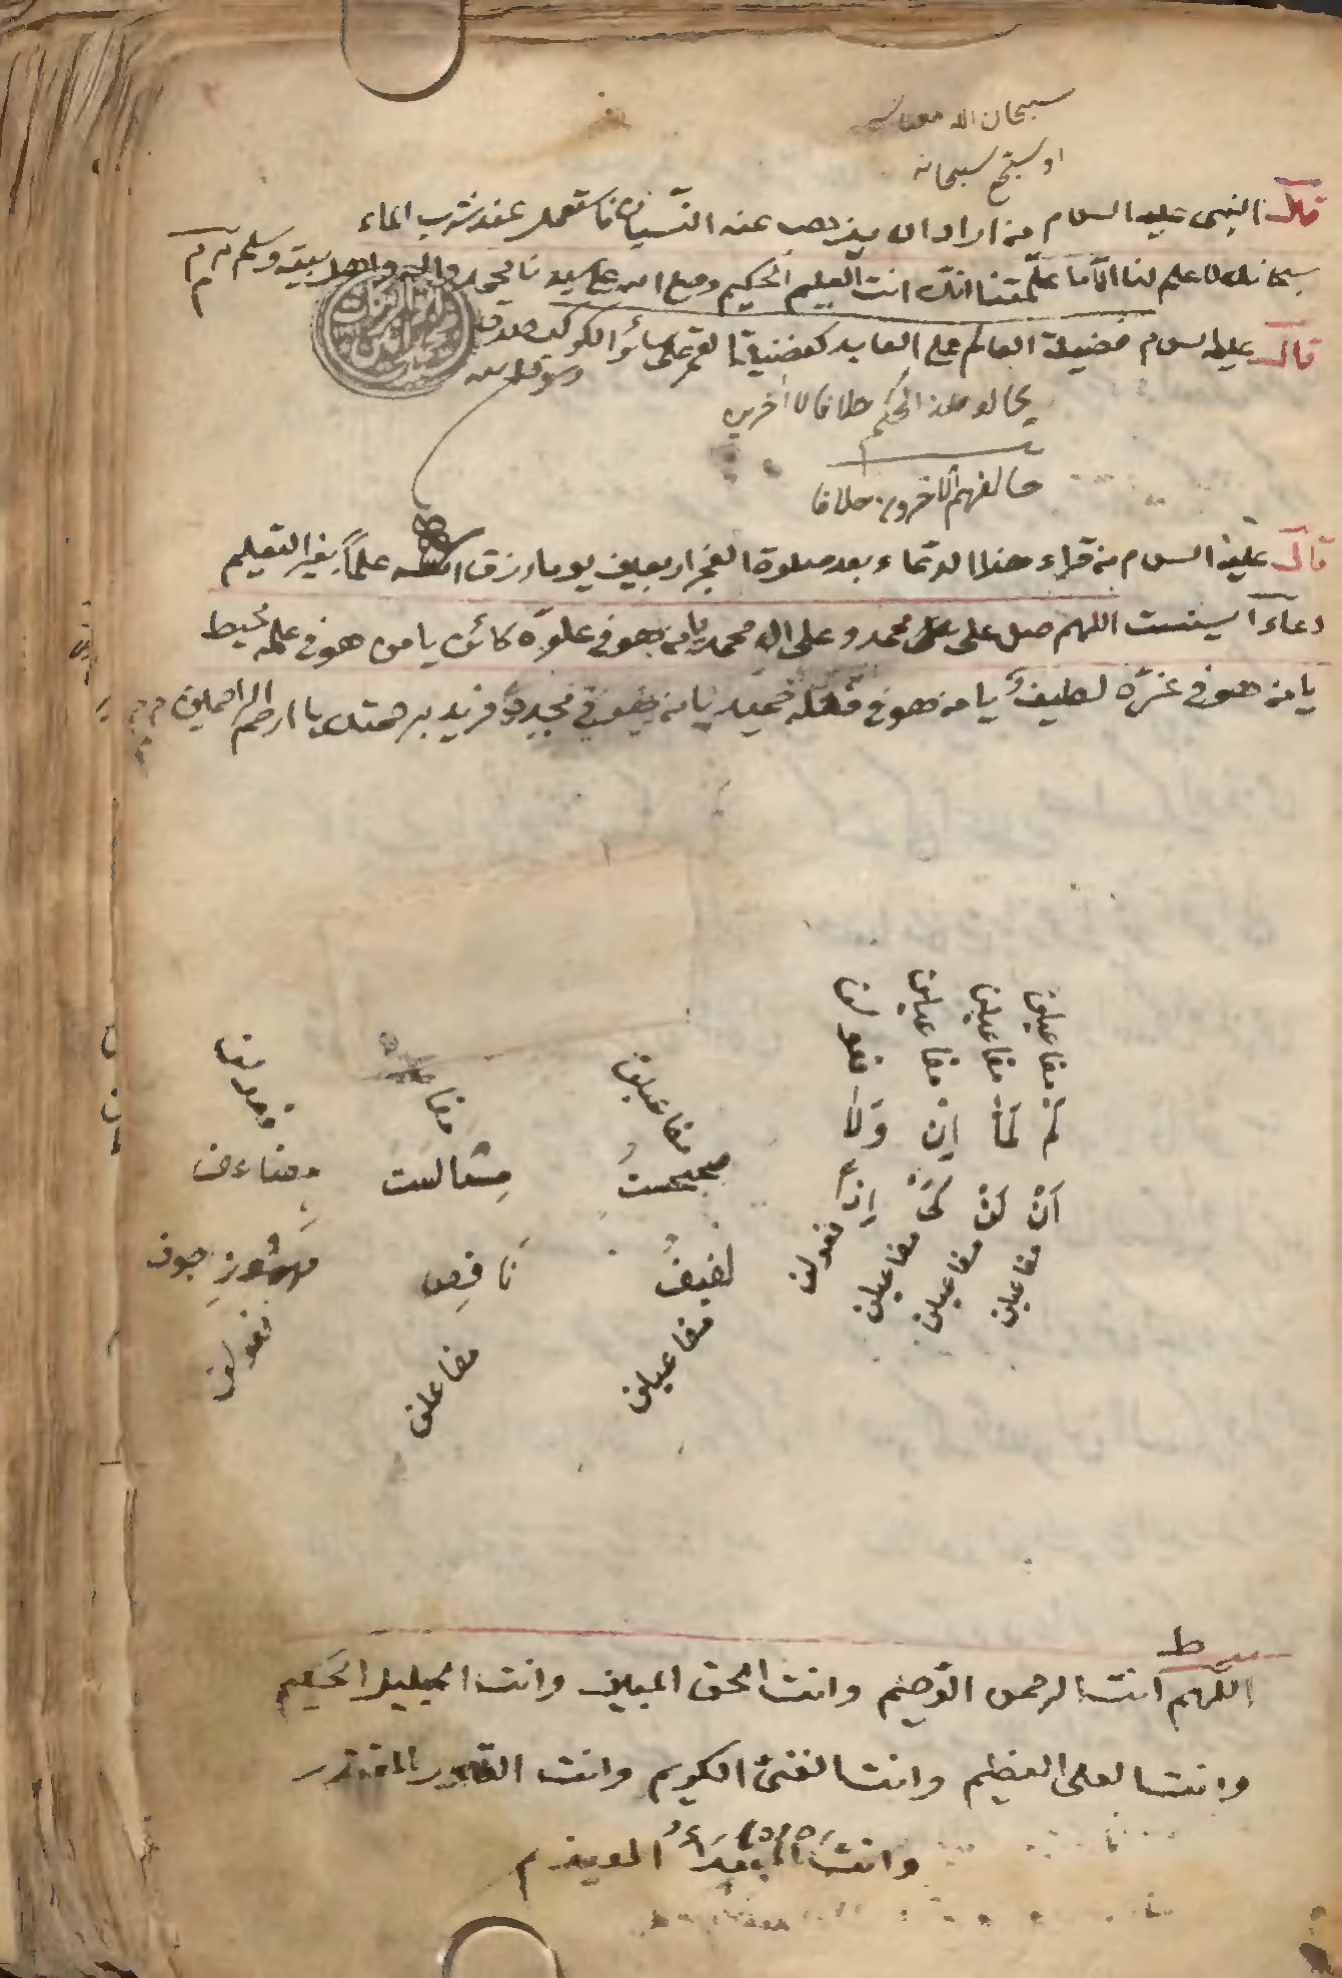 سبحان الله معناه
او سبح سبحانه
قال النبى عليه السلام من اراد ان يذهب عنه النسيان فاستعمل عند شرب الماء
سبحانك لا علم لنا الا ما علمتنا انك انت العليم الحكيم وصلى الله على سيدنا محمد واله واهل بيته وسلم م م م
قال عليه السلام فضيلة العالم على العابد كفضيلة القمر على سائر الكوكب صدق
رسول الله
يخالف هذا الحكم خلافا لاخرين
خالفهم الاخرون خلافا
قال عليه السلام من قراء هذا الدعاء بعد صلوة الفجر اربعين يوما رزق الله علما بغير التعليم
دعاء اينست اللهم صل على محمد وعلى ال محمد يا من هو فى علوه كائن يا من هو فى علمه محيط
يا من هو فى عزه لطيف يا من هو فى فعله حميد يا من هو فى مجده فريد برحمتك يا ارحم الراحمين م م
مفاعيلن مفاعيلن مفاعيلن فعولن
لَمْ لَمّا اِنْ وَلَا
اَنْ لَنْ كَىْ اِذَنْ
مفاعيلن مفاعيلن مفاعيلن فعولن
مفاعيلن مفا فعولن
صحيحست مثالست مضاعف
لفيف ناقص مهموز اجوف
مفاعيلن مفاعلن فعولن
اللهم انت الرحمن الرحيم وانت الحق المبين وانت الجليل الحكيم
وانت العلى العظيم وانت الغنى الكريم وانت القدير المقتدر
وانت المبدأ المعيد م